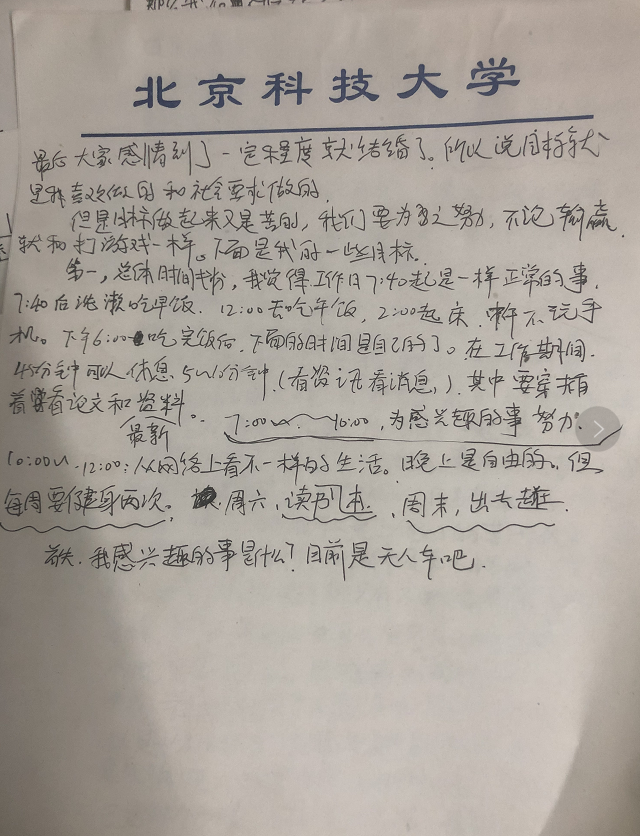 北京科技大学
最后大家感情到了一定程度就结婚了。所以说目标就
是我喜欢做的和社会要求做的.
但是目标做起来又是苦的，我们要为之努力，不论输赢.
就和打游戏一样。下面是我的一些目标.
第一，总体时间部分，我觉得工作日7:40起是一样正常的事.
7:40后洗漱吃早饭. 12:00去吃午饭，2:00起床. 中午不玩手
机。下午6:00吃完饭后. 下面的时间是自己的了。在工作期间.
45分钟可以休息5~10分钟.（看资讯看消息.）. 其中要穿插
着看论文和资料.
最新
7:00~10:00，为感兴趣的事努力.
10:00~12:00：从网络上看不一样的生活。晚上是自由的.. 但
每周要健身两次， 周六，读书1本. 周末，出去逛.
首先. 我感兴趣的事是什么？目前是无人车吧.